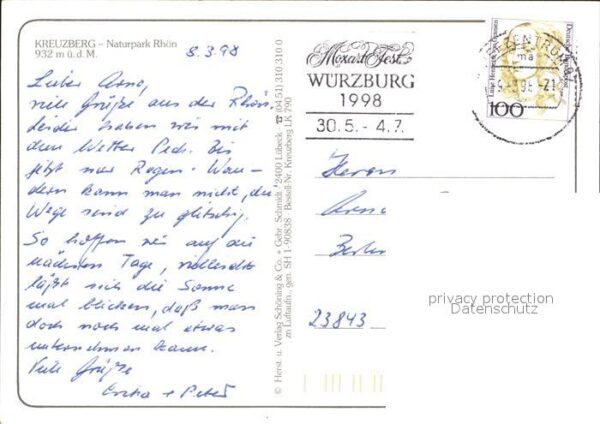 KREUZBERG – Naturpark Rhön
932 m ü. d. M.
8.3.98
Lieber Arno,
viele Grüße aus der Rhön
leider haben wir mit
dem Wetter Pech. Bis
jetzt nur Regen. Wan-
dern kann man nicht, die
Wege sind zu glitschig.
So hoffen wir auf die
nächsten Tage, vielleicht
läßt sich die Sonne
mal blicken, daß man
doch noch mal etwas
unternehmen kann.
Viele Grüße
Erika + Peter
© Herst. u. Verlag Schöning & Co. + Gebr. Schmidt · 2400 Lübeck · ☎ (04 51) 310 310 0
zn Luftaufn., gen. SH 1-90838 · Bestell-Nr. Kreuzberg LK 790
Mozart Fest
WÜRZBURG
1998
30.5. - 4.7.
ZENTRUM
ma
98-21
100
Deutsche Bundespost
Herrn
Arno
Berlin
23843
privacy protection
Datenschutz